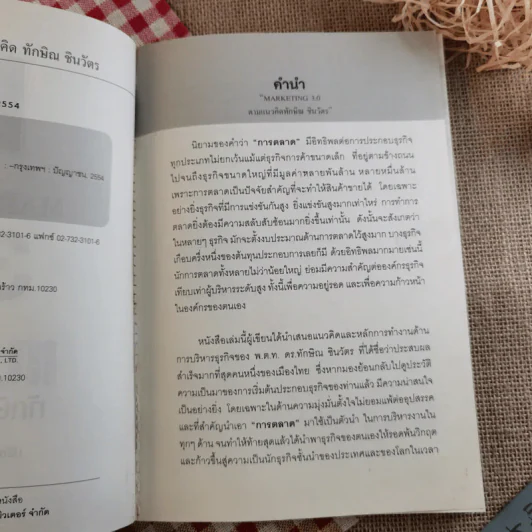 คิด ทักษิณ ชินวัตร
2554
: -กรุงเทพฯ : ปัญญาชน, 2554
2-3101-6 แฟกซ์ 02-732-3101-6
ร้าว กทม.10230
จำกัด
LTD.
10230
หนังสือ
จำกัด
คำนำ
"MARKETING 3.0
ตามแนวคิดทักษิณ ชินวัตร"
นิยามของคำว่า "การตลาด" มีอิทธิพลต่อการประกอบธุรกิจ
ทุกประเภทไม่ยกเว้นแม้แต่ธุรกิจการค้าขนาดเล็ก ที่อยู่ตามข้างถนน
ไปจนถึงธุรกิจขนาดใหญ่ที่มีมูลค่าหลายพันล้าน หลายหมื่นล้าน
เพราะการตลาดเป็นปัจจัยสำคัญที่จะทำให้สินค้าขายได้ โดยเฉพาะ
อย่างยิ่งธุรกิจที่มีการแข่งขันกันสูง ยิ่งแข่งขันสูงมากเท่าไหร่ การทำการ
ตลาดยิ่งต้องมีความสลับซับซ้อนมากยิ่งขึ้นเท่านั้น ดังนั้นจะสังเกตว่า
ในหลายๆ ธุรกิจ มักจะตั้งงบประมาณด้านการตลาดไว้สูงมาก บางธุรกิจ
เกือบครึ่งหนึ่งของต้นทุนประกอบการเลยก็มี ด้วยอิทธิพลมากมายเช่นนี้
นักการตลาดทั้งหลายไม่ว่าน้อยใหญ่ ย่อมมีความสำคัญต่อองค์กรธุรกิจ
เทียบเท่าผู้บริหารระดับสูง ทั้งนี้เพื่อความอยู่รอด และเพื่อความก้าวหน้า
ในองค์กรของตนเอง
หนังสือเล่มนี้ผู้เขียนได้นำเสนอแนวคิดและหลักการทำงานด้าน
การบริหารธุรกิจของ พ.ต.ท. ดร.ทักษิณ ชินวัตร ที่ได้ชื่อว่าประสบผล
สำเร็จมากที่สุดคนหนึ่งของเมืองไทย ซึ่งหากมองย้อนกลับไปดูประวัติ
ความเป็นมาของการเริ่มต้นประกอบธุรกิจของท่านแล้ว มีความน่าสนใจ
เป็นอย่างยิ่ง โดยเฉพาะในด้านความมุ่งมั่นตั้งใจไม่ยอมแพ้ต่ออุปสรรค
และที่สำคัญนำเอา "การตลาด" มาใช้เป็นตัวนำ ในการบริหารงานใน
ทุกๆ ด้าน จนทำให้ท้ายสุดแล้วได้นำพาธุรกิจของตนเองให้รอดพ้นวิกฤต
และก้าวขึ้นสู่ความเป็นนักธุรกิจชั้นนำของประเทศและของโลกในเวลา